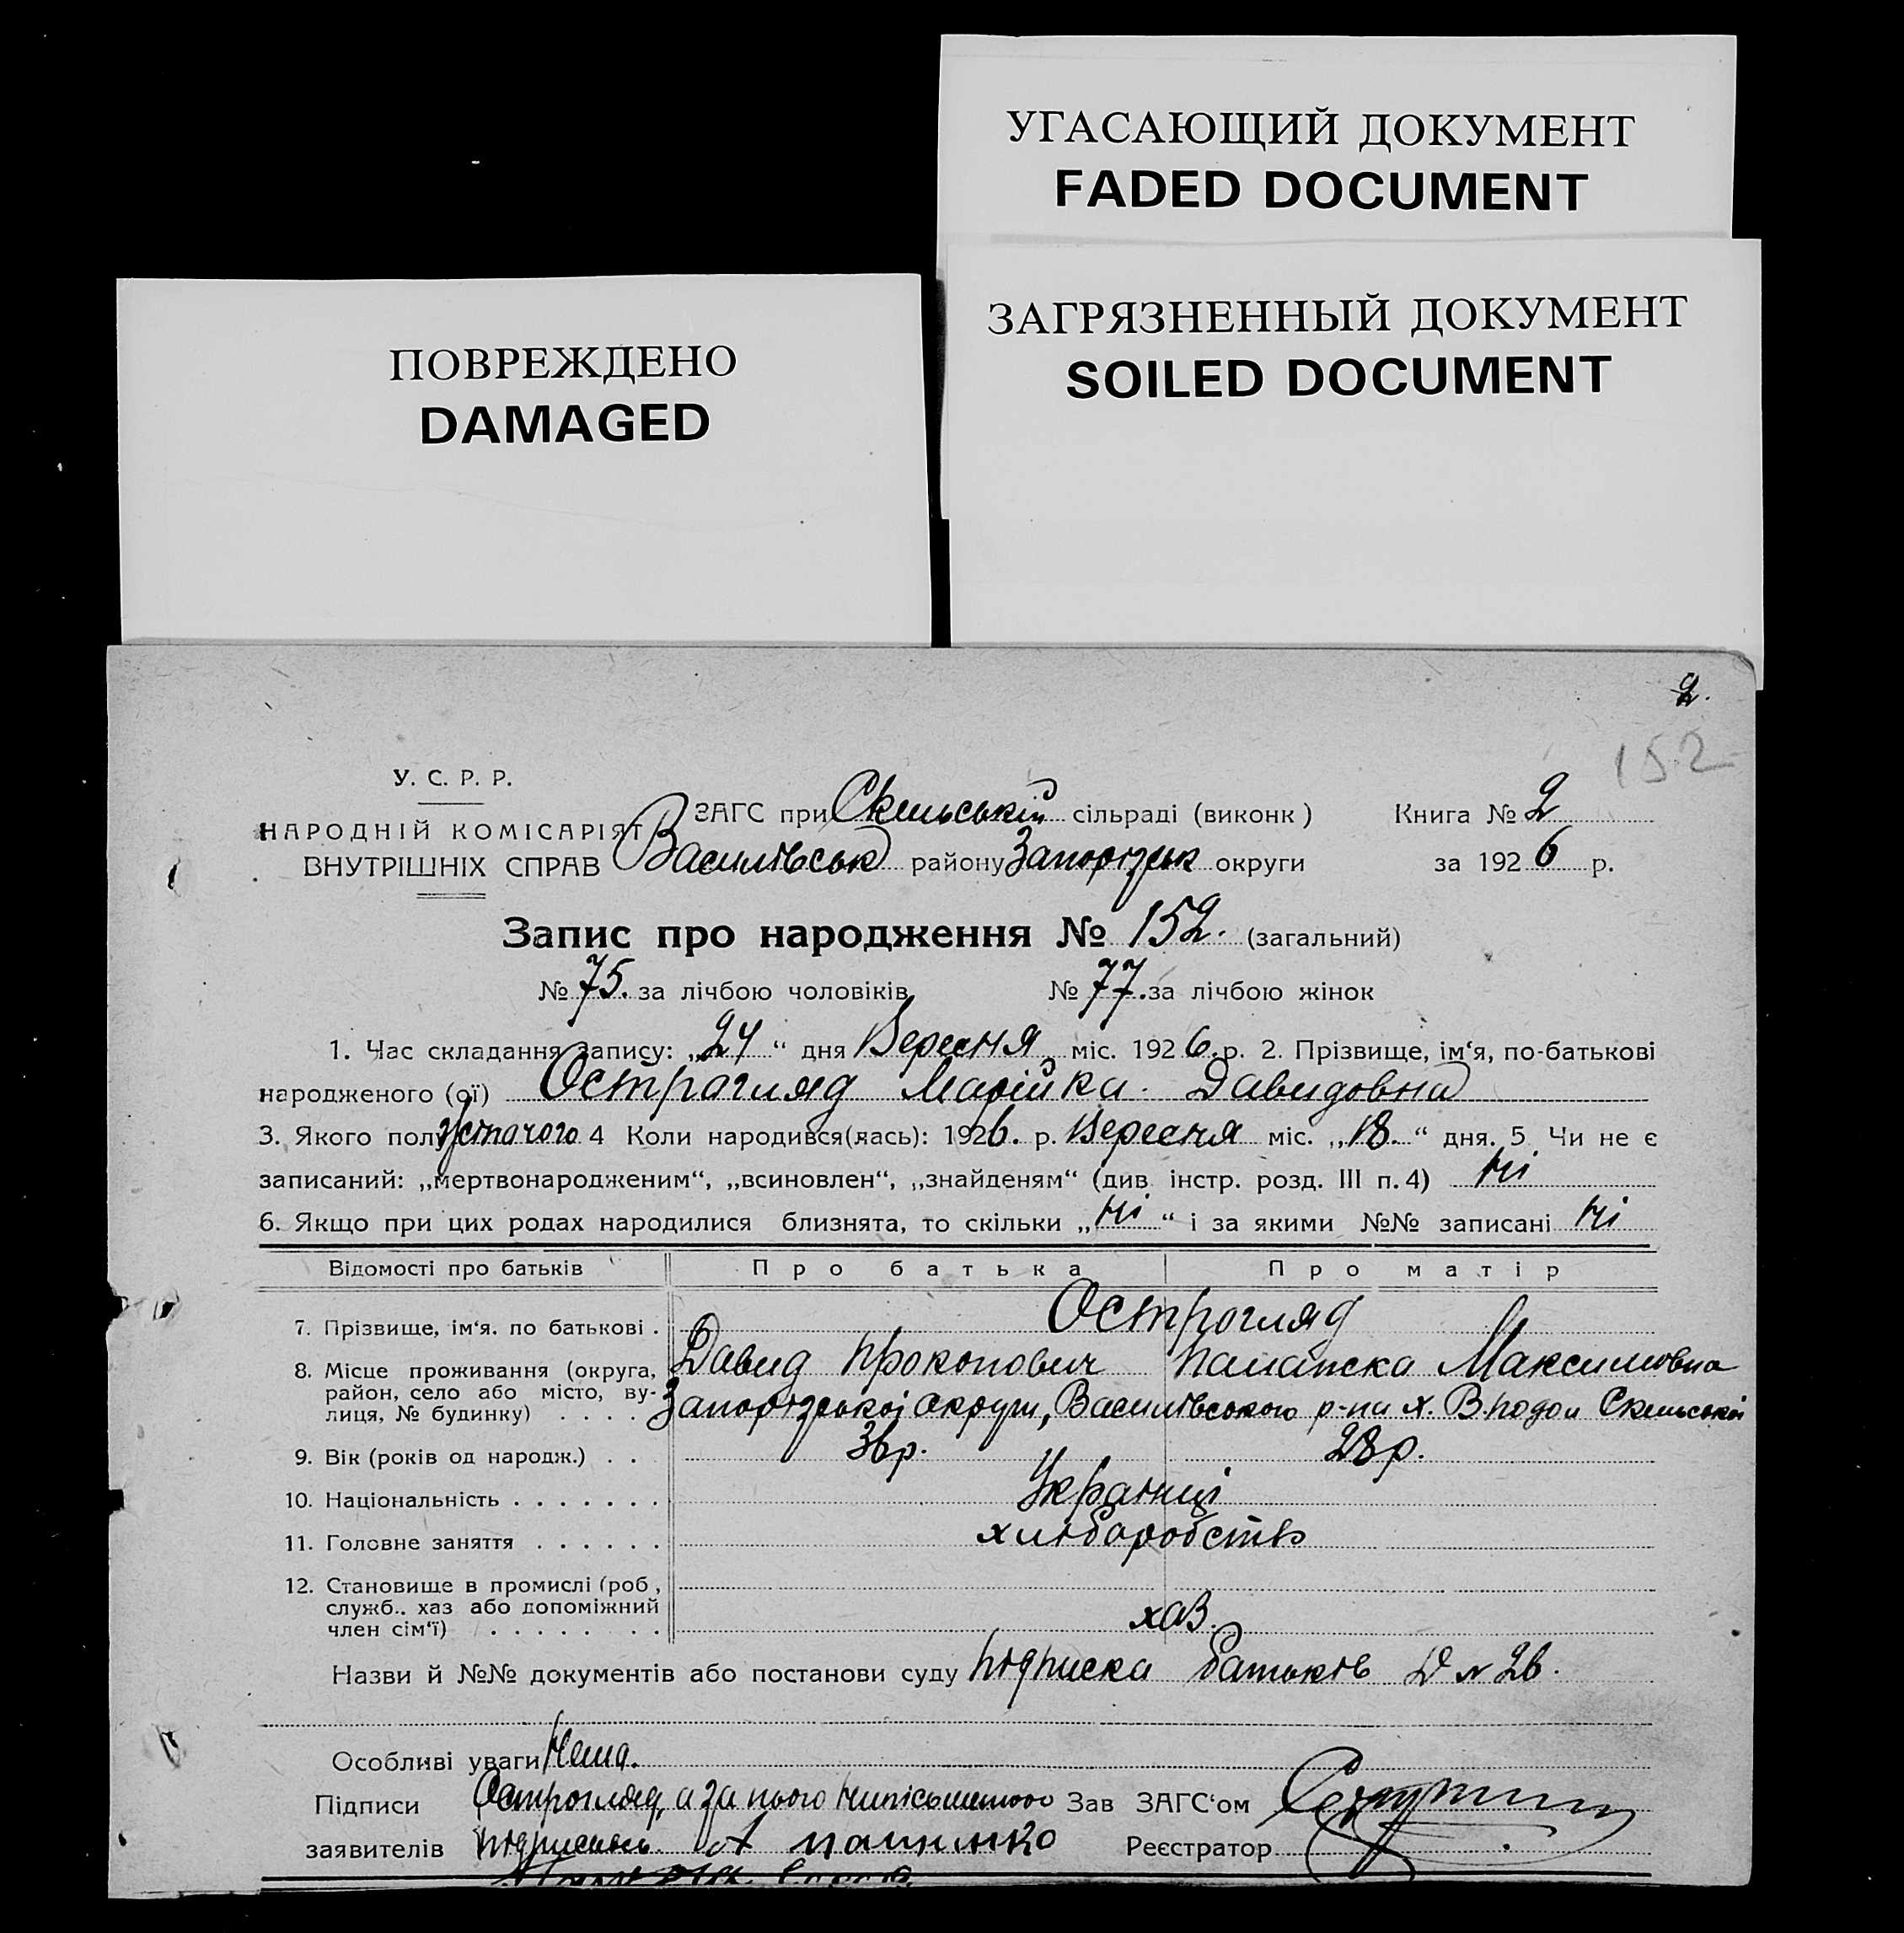 УГАСАЮЩИЙ ДОКУМЕНТ
FADED DOCUMENT
ЗАГРЯЗНЕННЫЙ ДОКУМЕНТ
SOILED DOCUMENT
ПОВРЕЖДЕНО
DAMAGED
2.
152
У. С. Р. Р.
НАРОДНІЙ КОМІСАРІЯТ
ВНУТРІШНІХ СПРАВ
ЗАГС при Скельській сільраді (виконк) Книга № 2
Василівськ району Запоріжськ округи за 1926 р.
Запис про народження № 152. (загальний)
№ 75. за лічбою чоловіків № 77. за лічбою жінок
1. Час складання запису: „24“ дня Вересня міс. 1926. р. 2. Прізвище, ім‘я, по-батькові
народженого (ої) Острогляд Марійка Давидовна
3. Якого полу жіночого 4 Коли народився(лась): 1926. р. Вересня міс. „18.“ дня. 5 Чи не є
записаний: „мертвонародженим“, „всиновлен“, „знайденям“ (див. інстр. розд. III п. 4) Ні
6. Якщо при цих родах народилися близнята, то скільки „Ні“ і за якими №№ записані Ні
Відомості про батьків Про батька Про матір
7. Прізвище, ім‘я. по батькові . Острогляд
Давид Прокопович Максимовна
8. Місце проживання (округа, район, село або місто, вулиця, № будинку) . . . . Запоріжської округи, Василівського р-на х. В. Подол Скельської
9. Вік (років од народж.) . . 36 р. 28 р.
10. Національність . . . . . . . Українці
11. Головне заняття . . . . . . хліборобств
12. Становище в промислі (роб,
служб.. хаз або допоміжний
член сім‘ї) . . . . . . . . хаз.
Назви й №№ документів або постанови суду Підписка батьків Д № 26.
Особливі уваги Нема.
Підписи Острогляд, а за нього Зав ЗАГС‘ом
заявителів Реєстратор